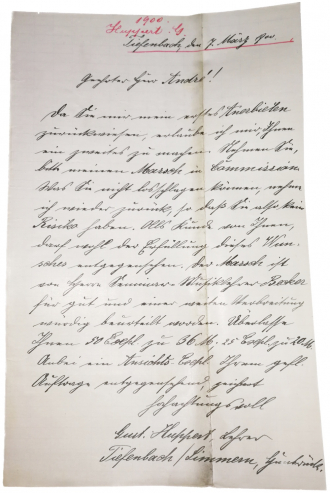 1900
Huppert G
Tiefenbach, den 7. März 1900.
Geehrter Herr André!
Da Sie mir mein erstes Anerbieten
zurückwiesen, erlaube ich mir Ihnen
ein zweites zu machen. Nehmen Sie,
bitte meinen Marsch in Commission
Was Sie nicht losschlagen können, nehm
ich wieder zurück, so daß Sie also kein
Risiko haben. Als Kunde von Ihnen,
darf wohl der Erfüllung dieses Wun-
sches entgegensehen. Der Marsch ist
von Herrn Seminar-Musiklehrer Becker
für gut und einer weiten Verbreitung
würdig beurteilt worden. Überlasse
Ihnen 50 Expl. zu 36 M. 25 Expl. zu 20 M.
Anbei ein Ansichts-Expl. Ihrem gefl.
Auftrage entgegensehend, zeichnet
hochachtungsvoll
Gust. Huppert, Lehrer
Tiefenbach / Simmern, Hunsrück.